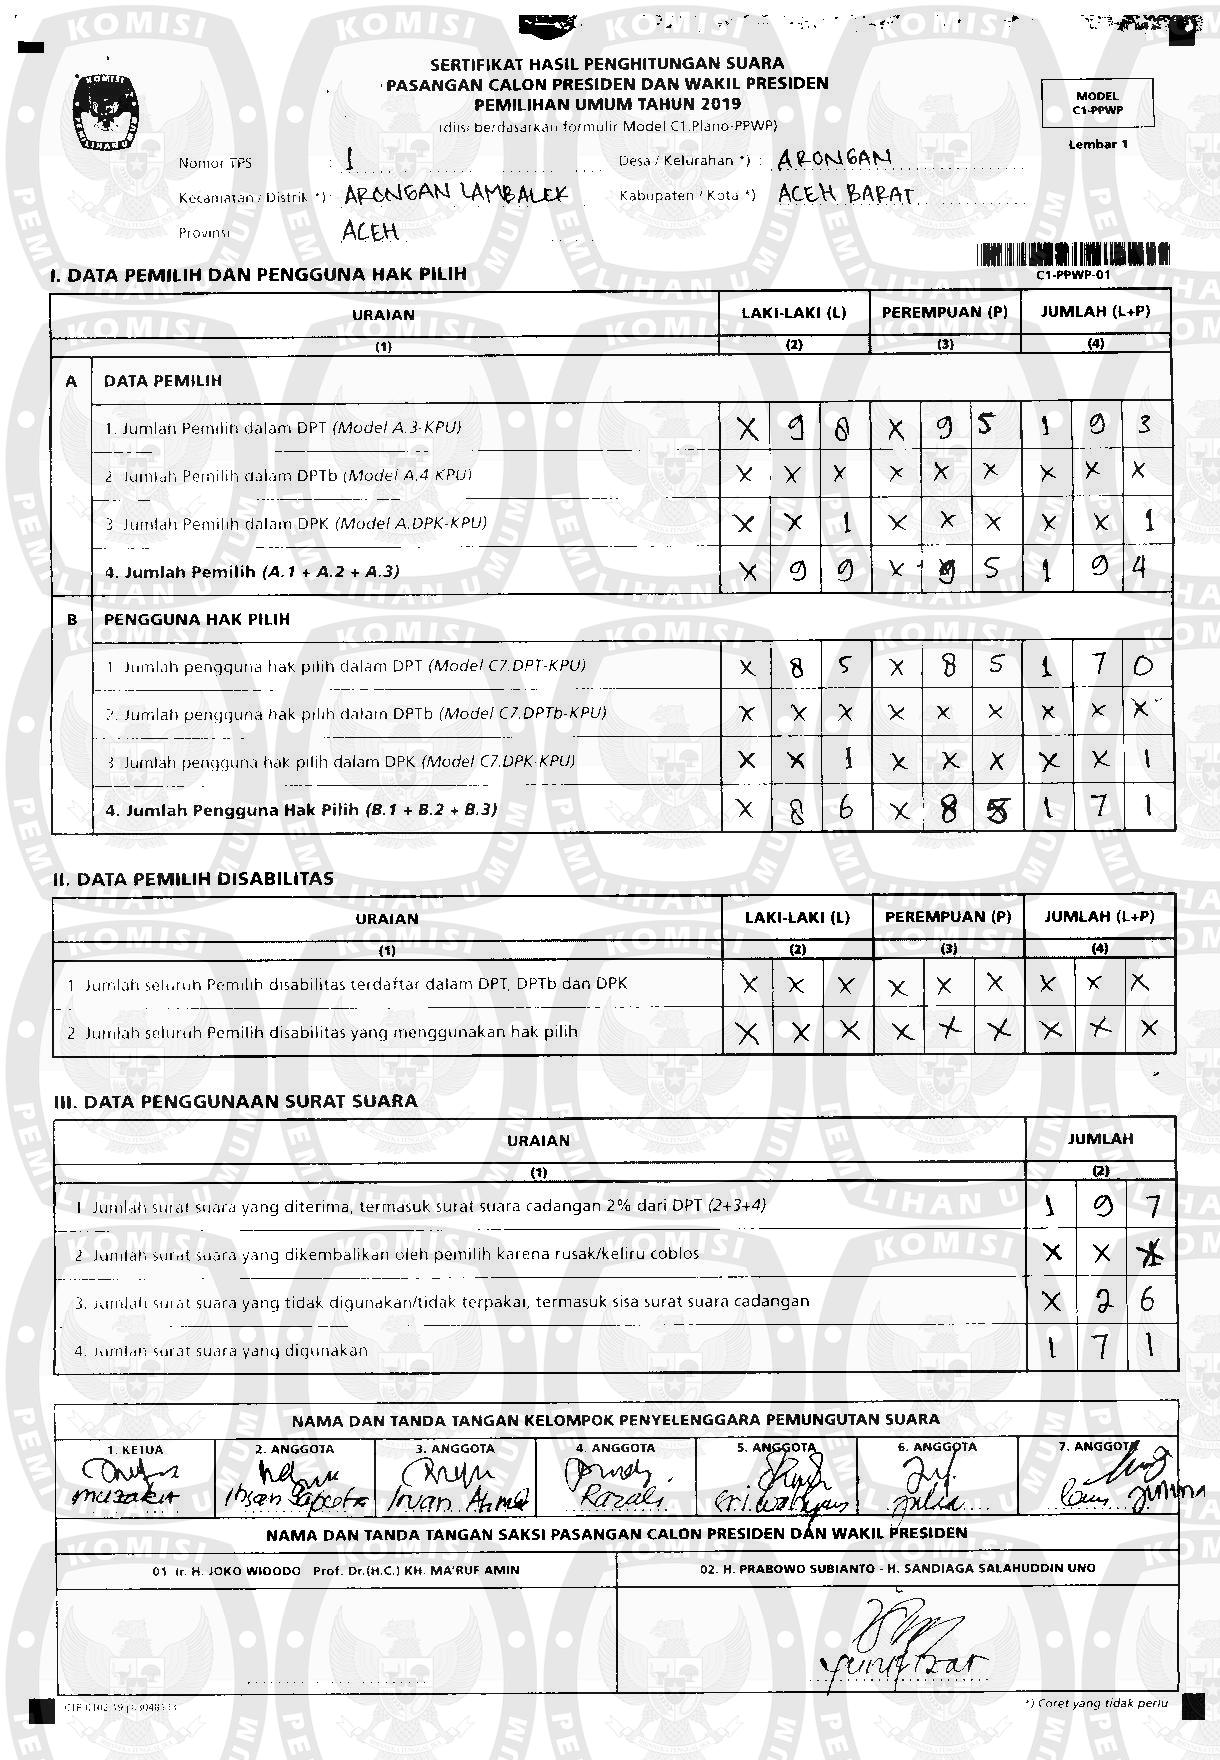 SERTIFIKAT HASIL PENGHITUNGAN SUARA
PASANGAN CALON PRESIDEN DAN WAKIL PRESIDEN
PEMILIHAN UMUM TAHUN 2019
(diisi berdasarkan formulir Model C1.Plano-PPWP)
MODEL
C1-PPWP
Lembar 1
Nomor TPS : 1 Desa / Kelurahan *) : ARONGAN
Kecamatan / Distrik *) : ARONGAN LAMBALEK Kabupaten / Kota *) : ACEH BARAT
Provinsi ACEH
C1-PPWP-01
I. DATA PEMILIH DAN PENGGUNA HAK PILIH
URAIAN LAKI-LAKI (L) PEREMPUAN (P) JUMLAH (L+P)
(1) (2) (3) (4)
A DATA PEMILIH
1. Jumlah Pemilih dalam DPT (Model A.3-KPU) X 9 8 X 9 5 1 9 3
2 Jumlah Pemilih dalam DPTb (Model A.4 KPU) X X X X X X X X X
3 Jumlah Pemilih dalam DPK (Model A.DPK-KPU) X X 1 X X X X X 1
4. Jumlah Pemilih (A.1 + A.2 + A.3) X 9 9 X 9 5 1 9 4
B PENGGUNA HAK PILIH
1 Jumlah pengguna hak pilih dalam DPT (Model C7.DPT-KPU) X 8 5 X 8 5 1 7 0
2. Jumlah pengguna hak pilih dalam DPTb (Model C7.DPTb-KPU) X X X X X X X X X
3 Jumlah pengguna hak pilih dalam DPK (Model C7.DPK-KPU) X X 1 X X X X X 1
4. Jumlah Pengguna Hak Pilih (B.1 + B.2 + B.3) X 8 6 X 8 5 1 7 1
II. DATA PEMILIH DISABILITAS
URAIAN LAKI-LAKI (L) PEREMPUAN (P) JUMLAH (L+P)
(1) (2) (3) (4)
1 Jumlah seluruh Pemilih disabilitas terdaftar dalam DPT, DPTb dan DPK X X X X X X X X X
2 Jumlah seluruh Pemilih disabilitas yang menggunakan hak pilih X X X X X X X X X
III. DATA PENGGUNAAN SURAT SUARA
URAIAN JUMLAH
(1) (2)
1 Jumlah surat suara yang diterima, termasuk surat suara cadangan 2% dari DPT (2+3+4) 1 9 7
2 Jumlah surat suara yang dikembalikan oleh pemilih karena rusak/keliru coblos X X X
3. Jumlah surat suara yang tidak digunakan/tidak terpakai, termasuk sisa surat suara cadangan X 2 6
4. Jumlah surat suara yang digunakan 1 7 1
NAMA DAN TANDA TANGAN KELOMPOK PENYELENGGARA PEMUNGUTAN SUARA
1. KETUA 2. ANGGOTA 3. ANGGOTA 4. ANGGOTA 5. ANGGOTA 6. ANGGOTA 7. ANGGOTA
muzakir Ihsan Saputra Irvan Ahmad Razali Sri wahyuni Julia
NAMA DAN TANDA TANGAN SAKSI PASANGAN CALON PRESIDEN DAN WAKIL PRESIDEN
01 Ir. H. JOKO WIDODO Prof. Dr.(H.C.) KH. MA'RUF AMIN 02. H. PRABOWO SUBIANTO - H. SANDIAGA SALAHUDDIN UNO
*) Coret yang tidak perlu